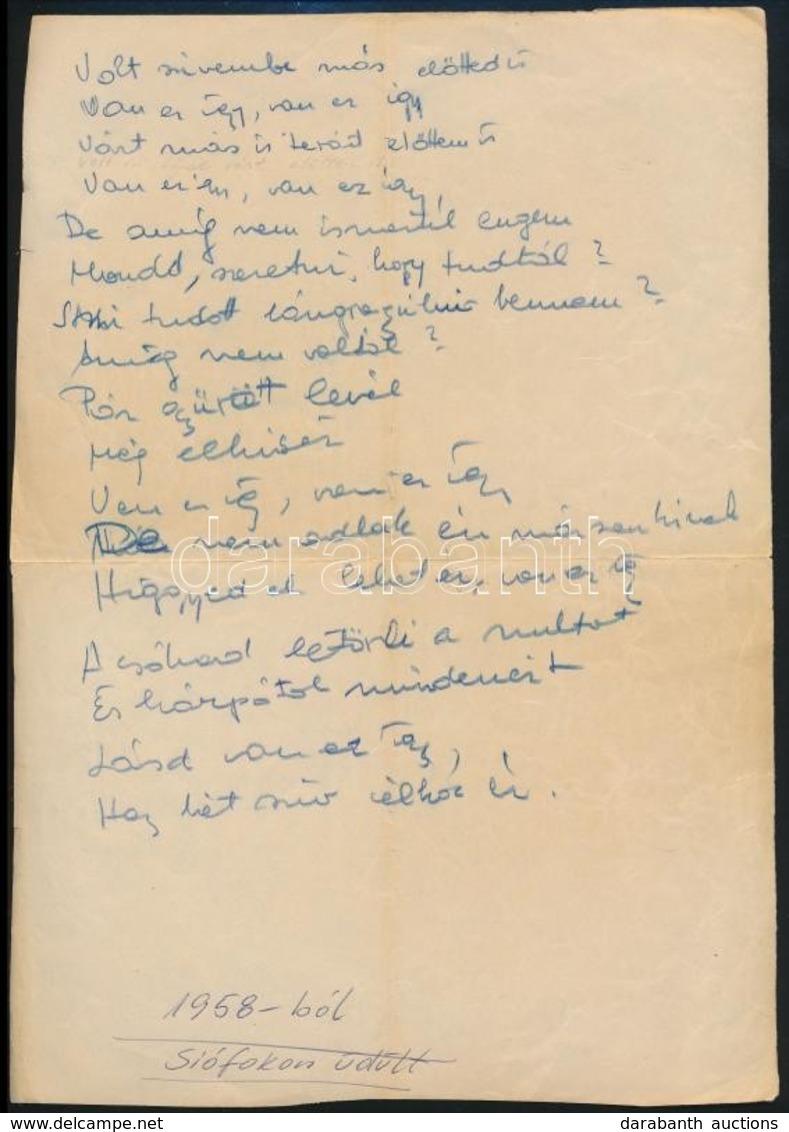 Volt szivembe más előtted is
Van ez így, van ez így
Várt más is terád előttem is
Van ez így, van ez így
De amíg nem ismertél engem
Mondd, szeretni, hogy tudtál?
S ki tudott lángra gyúlni bennem?
Amíg nem voltál?
Pár gyűrött levél
Még elkisér
Van ez így, van ez így
De nem adlak én már senkinek
Higgyed el lehet ez, van ez így
A csókod letörli a multat
És kárpótol mindenért
Lásd van ez így,
Hogy két szív célhoz ér.
darabanth
1958-ból
Siófokon üdült
darabanth auctions